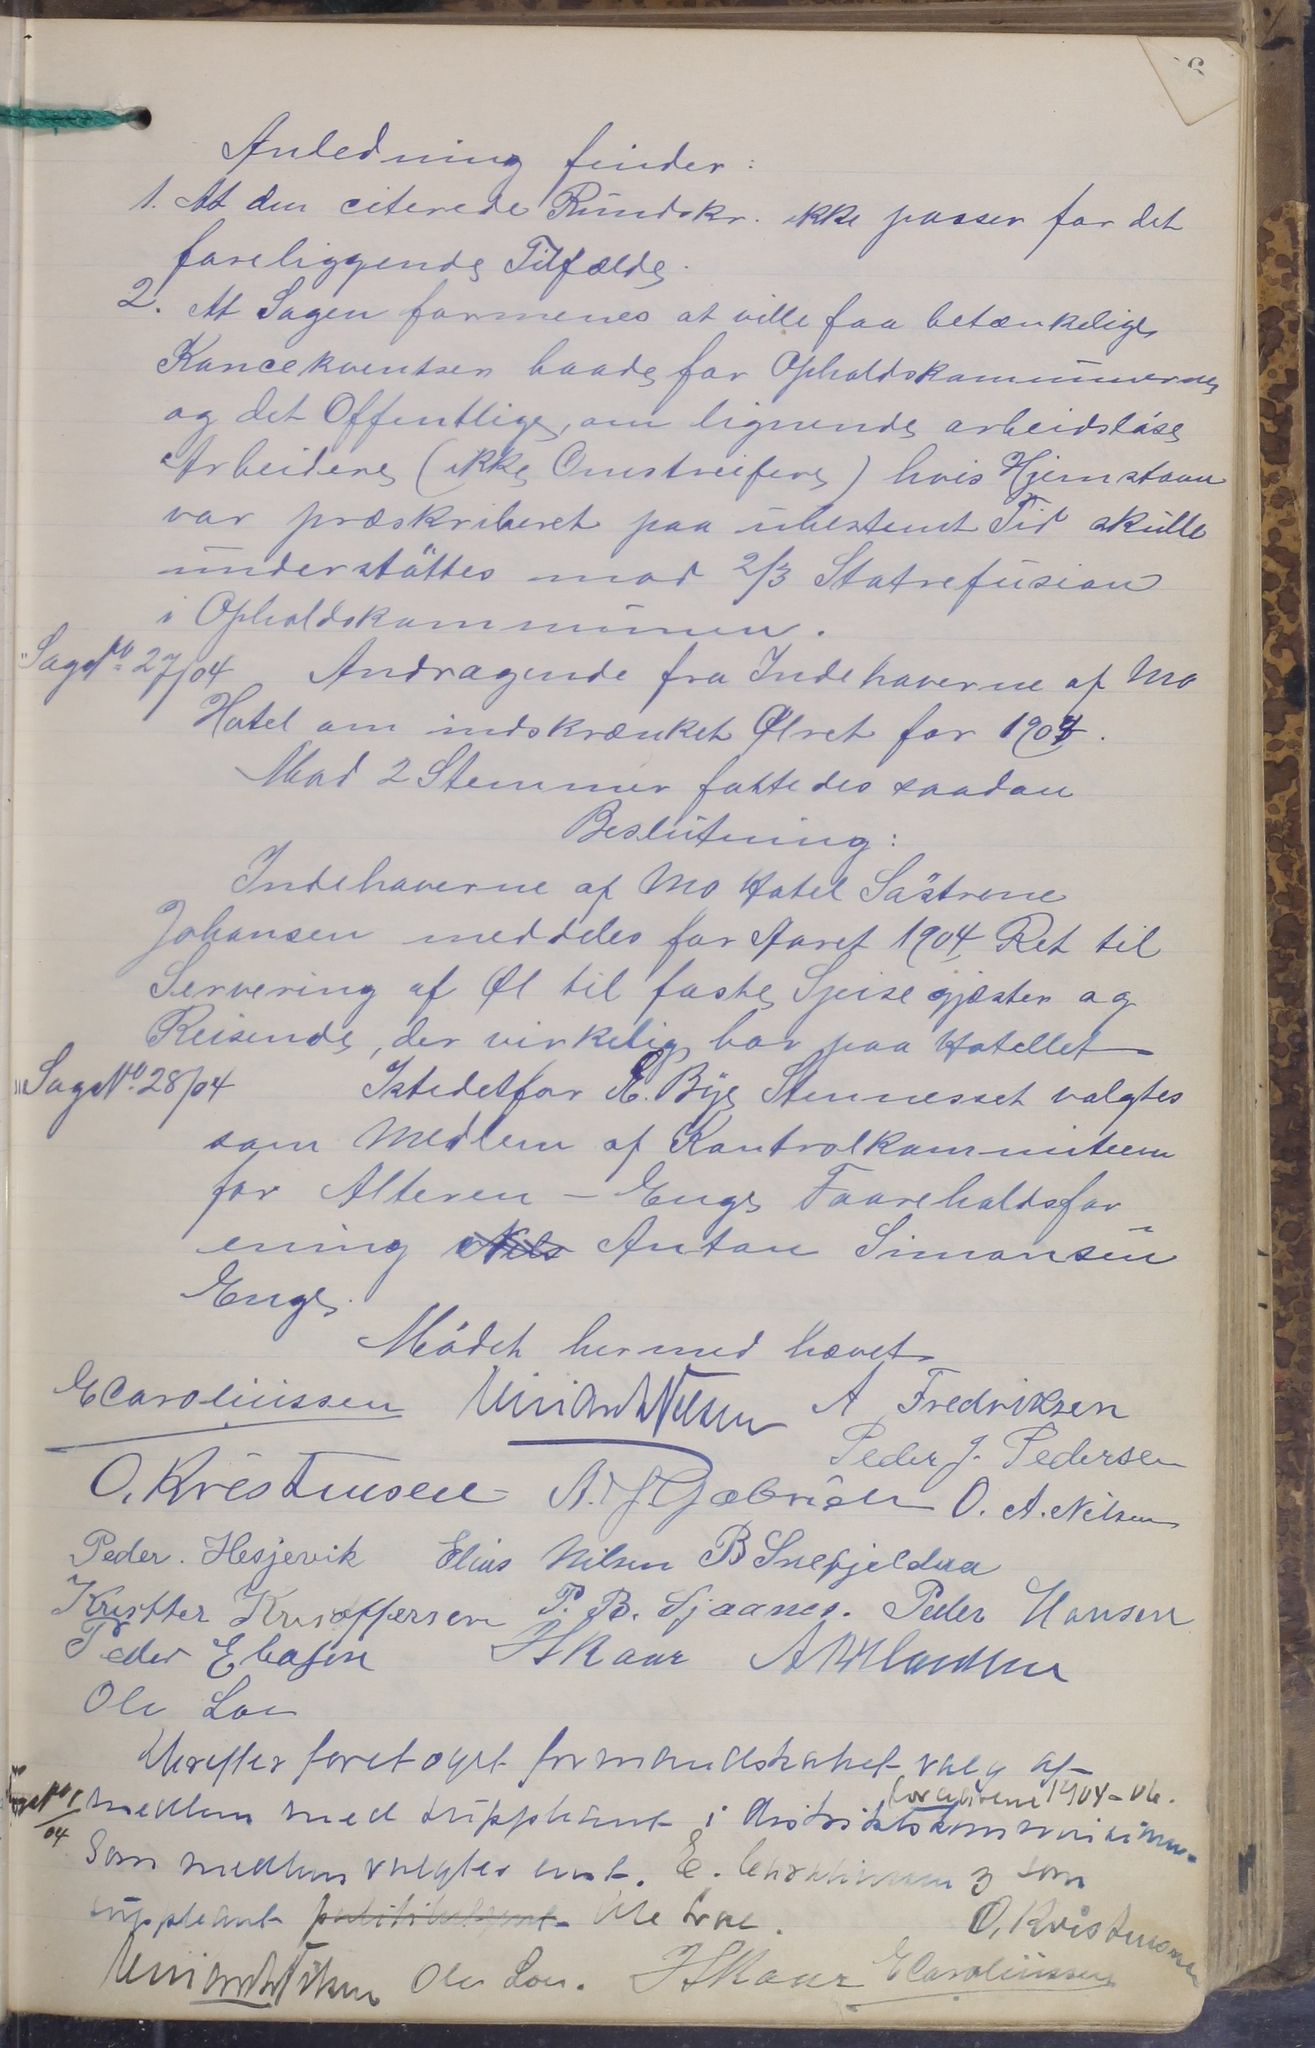 Anledning finder:
1. At den citerede Rundskr. ikke passer for det
foreliggende Tilfælde.
2. At Sagen formenes at ville faa betænkelige
Koncekventser baade for Opholdskommunerne
og det Offentlige, om lignende arbeidsløse
Arbeidere (ikke Omstreifere) hvis Hjemstavn
var præskriberet paa ubestemt Tid skulle
understøttes mod 2/3 Statrefusion
i Opholdskommunen.
Sag No 27/04 Andragende fra Indehaverne af Mo
Hotel om indskrænket Ølret for 1904.
Mod 2 Stemmer fattedes saadan
Beslutning:
Indehaverne af Mo Hotel Søstrene
Johansen meddeles for Aaret 1904 Ret til
Servering af Øl til faste Spisegjæster og
Reisende, der virkelig bor paa Hotellet
Sag No. 28/04 Istedetfor P. Bye Stennesset valgtes
som Medlem af Kontrolkommiteen
for Alteren - Enge Faareholdsfor
ening Nils Anton Simonsen
Enge.
Mødet hermed hævet
E Caroliussen Nelsen A Fredriksen
Peder J. Pedersen
O. Kristensen A. J. Gabrielsen O. A. Nilsen
Peder. Hesjevik Elias Nilsen B Snefjeldaa
Kristoffer Kristoffersen P. B. Sjaanes. Peder Hansen
Peder Skaar
Ole Loe
Derefter foretoges formandskabet valg af
for aarene 1904-06.
No 1/04 medlem med suppleant i distriktskommissionen
Som medlem valgtes enst. E. Caroliussen og som
suppleant Ole Loe. O. Kristensen
Ole Loe. Skaar E Caroliussen